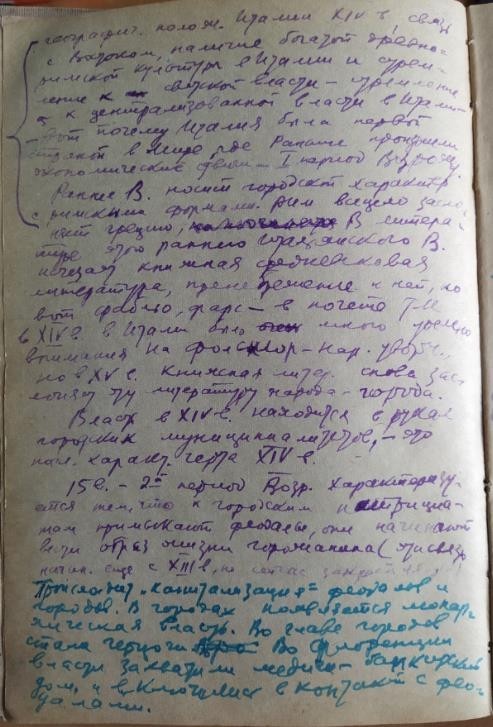 географич. полож. Италии XIV в, связь
с Востоком, наличие богатой
культуры в Италии и стрем-
ление к светской власти – стремление
к централизованной власти в Итали-
вот почему Италия была первой
страной в мире, где Раньше произошли
экономические I период Возрожд.
Раннее В. носит городской характер
с формами. Рим всецело засло-
няет грецию, В литера-
туре этого раннего итальянского В.
исчезает книжная средневековая
литература, пренебрежение к ней, но
вот фабльо, фарс – в почете т.к
в XIV в. в Италии было много уделено
внимания на фольклор – нар. творч.,
но в XV в. книжная литер. снова засл
оняет эту литературу народа – города.
Власть в XIV в. находится в руках
городских муниципалитетов, – это
пол. характ. черта XIV в.
15 в. – 2й период Возр. характеризу-
ется тем, что к городским патрициа-
там примыкают феодалы, они начинают
вести образ жизни горожанина (
начин. еще с XIII в, но сейчас
Происходит „капитализация" феодалов и
городов. В городах появляется монар-
хическая власть. Во главе городов
стали герцоги Во Флоренции
власть захватили медичи – банкирский
дом, и включились в контакт с фео-
далами.